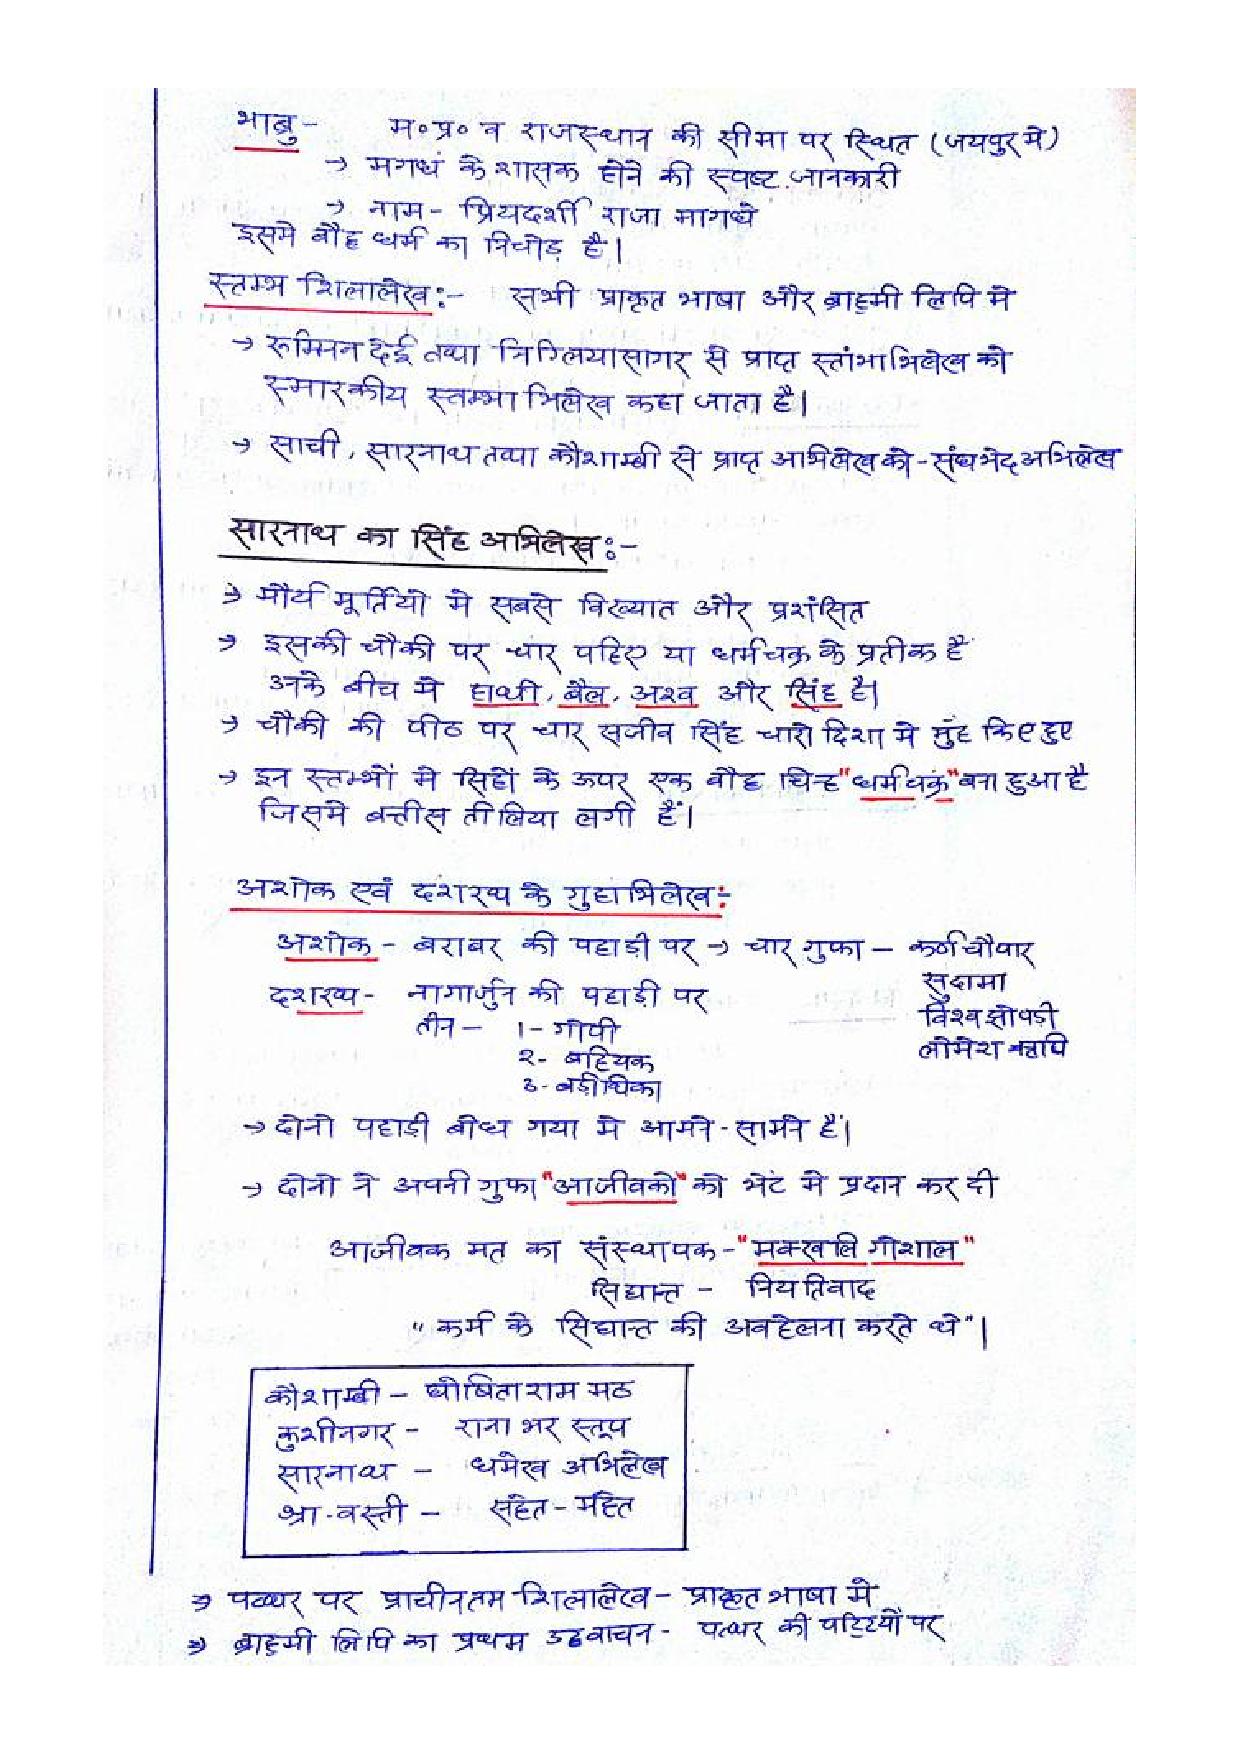 भाब्रु - म॰प्र॰ व राजस्थान की सीमा पर स्थित (जयपुर मे)
→ मगध के शासक होने की स्पष्ट जानकारी
→ नाम - प्रियदर्शी राजा मागधे
इसमे बौद्ध धर्म का निचोड़ है।
स्तम्भ शिलालेख:- सभी प्राकृत भाषा और ब्राह्मी लिपि मे
→ रुम्मिन देई तथा निग्लियासागर से प्राप्त स्तंभाभिलेख को
स्मारकीय स्तम्भाभिलेख कहा जाता है।
→ साची, सारनाथ तथा कौशाम्बी से प्राप्त अभिलेख को - संघभेद अभिलेख
सारनाथ का सिंह अभिलेख:-
→ मौर्य मूर्तियो मे सबसे विख्यात और प्रशंसित
→ इसकी चौकी पर चार पहिए या धर्मचक्र के प्रतीक है
उनके बीच मे हाथी, बैल, अश्व और सिंह है।
→ चौकी की पीठ पर चार सजीव सिंह चारो दिशा मे मुंह किए हुए
→ इन स्तम्भों मे सिहों के ऊपर एक बौद्ध चिन्ह "धर्मचक्र" बना हुआ है
जिसमे बत्तीस तीलिया लगी हैं।
अशोक एवं दशरथ के गुहाभिलेख:-
अशोक - बराबर की पहाड़ी पर → चार गुफा - कर्ण चौपार
सुदामा
दशरथ - नागार्जुन की पहाड़ी पर
विश्व झोपड़ी
तीन - 1 - गोपी
लोमेश ऋषि
2 - बहियक
3 - बड़ीथिका
→ दोनो पहाड़ी बोध गया मे आमने-सामने हैं।
→ दोनो ने अपनी गुफा "आजीवको" को भेंट मे प्रदान कर दी
आजीवक मत का संस्थापक - "मक्खलि गोशाल"
सिद्यान्त - नियतिवाद
"कर्म के सिद्यान्त की अवहेलना करते थे"।
कौशाम्बी - घोषिताराम मठ
कुशीनगर - रामा भर स्तूप
सारनाथ - धमेख अभिलेख
श्रावस्ती - सहेत-महेत
→ पत्थर पर प्राचीनतम शिलालेख - प्राकृत भाषा मे
→ ब्राह्मी लिपि का प्रथम उद्दवाचन - पत्थर की पट्टियों पर